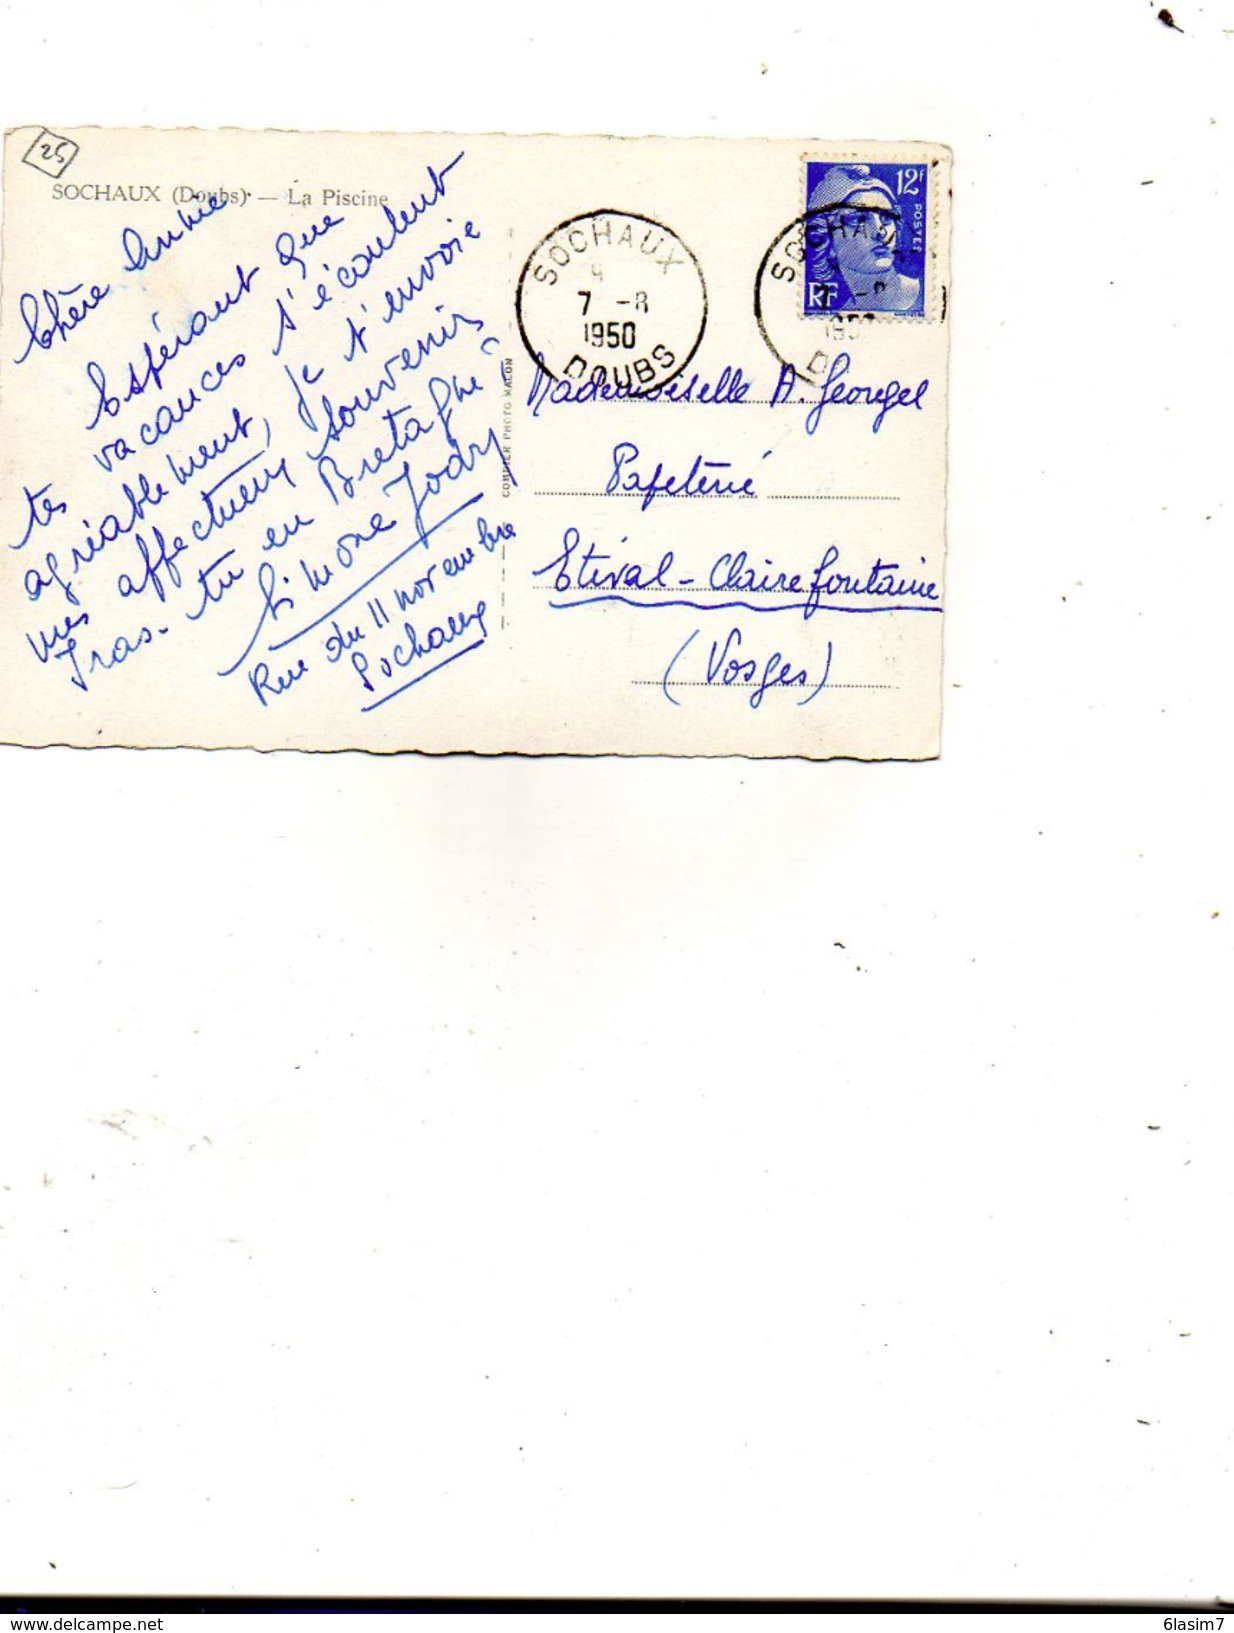 25
SOCHAUX (Doubs) — La Piscine
Chère Annie
Espérant que
tes vacances s'écoulent
agréablement, je t'envoie
mes affectueux souvenirs
Iras-tu en Bretagne ?
Simone Jodry
Rue du 11 novembre
Sochaux
COMBIER PHOTO MACON
SOCHAUX
7 -8
1950
DOUBS
12F
POSTES
RF
SOCHAUX
7 -8
1950
Mademoiselle A. Georgel
Papeterie
Etival-Clairefontaine
(Vosges)
6lasim7